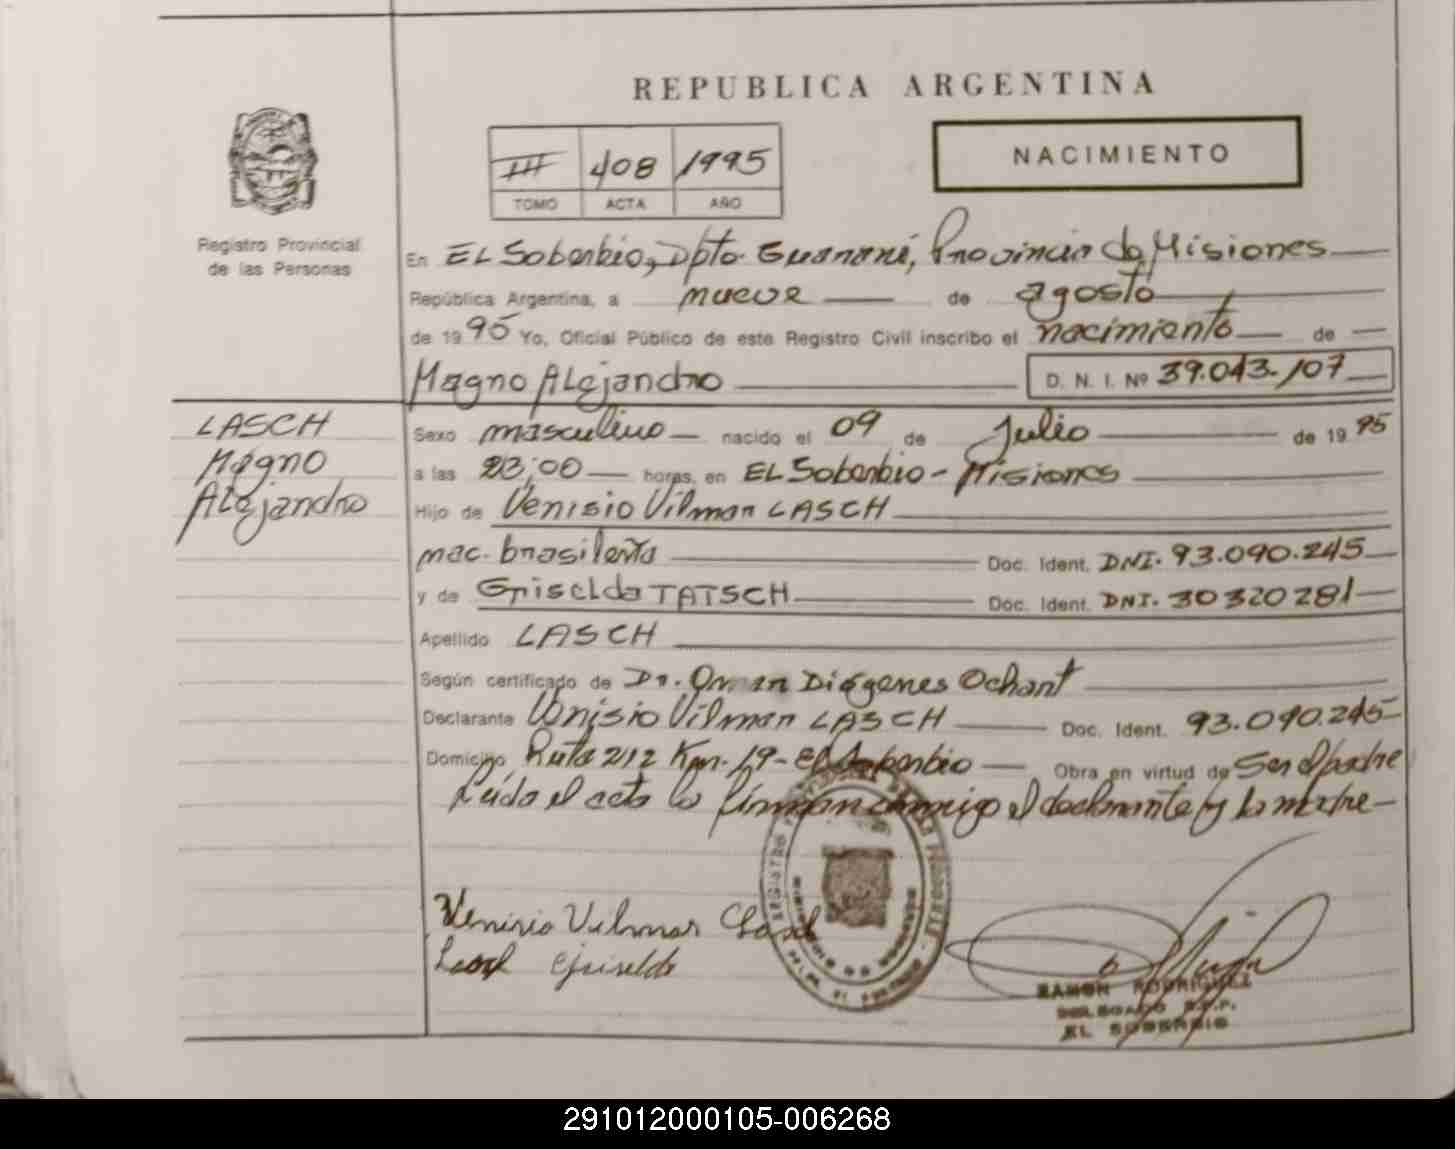 REPUBLICA ARGENTINA
NACIMIENTO
III 408 1995
TOMO ACTA AÑO
Registro Provincial
de las Personas
En EL Soberbio, Dpto. Guaraní, Provincia de Misiones
República Argentina, a nueve de agosto
de 1995 Yo, Oficial Público de este Registro Civil inscribo el nacimiento de
Magno Alejandro D. N. I. Nº 39.043.107
LASCH
Magno
Alejandro
Sexo masculino nacido el 09 de Julio de 1995
a las 23,00 horas, en EL Soberbio - Misiones
Hijo de Venisio Vilmar LASCH
nac. brasileña Doc. Ident. DNI. 93.090.245
y de Griselda TATSCH Doc. Ident. DNI. 30320281
Apellido LASCH
Según certificado de Dr. Omar Diógenes Ochant
Declarante Venisio Vilmar LASCH Doc. Ident. 93.090.245
Domicilio Ruta 212 Km. 19 - El Soberbio Obra en virtud de Ser el padre
Leído el acta la firman conmigo el declarante y la madre
Venisio Vilmar Lasch
Lasch Griselda
RAMON RODRIGUEZ
DELEGADO R.P.P.
EL SOBERBIO
291012000105-006268